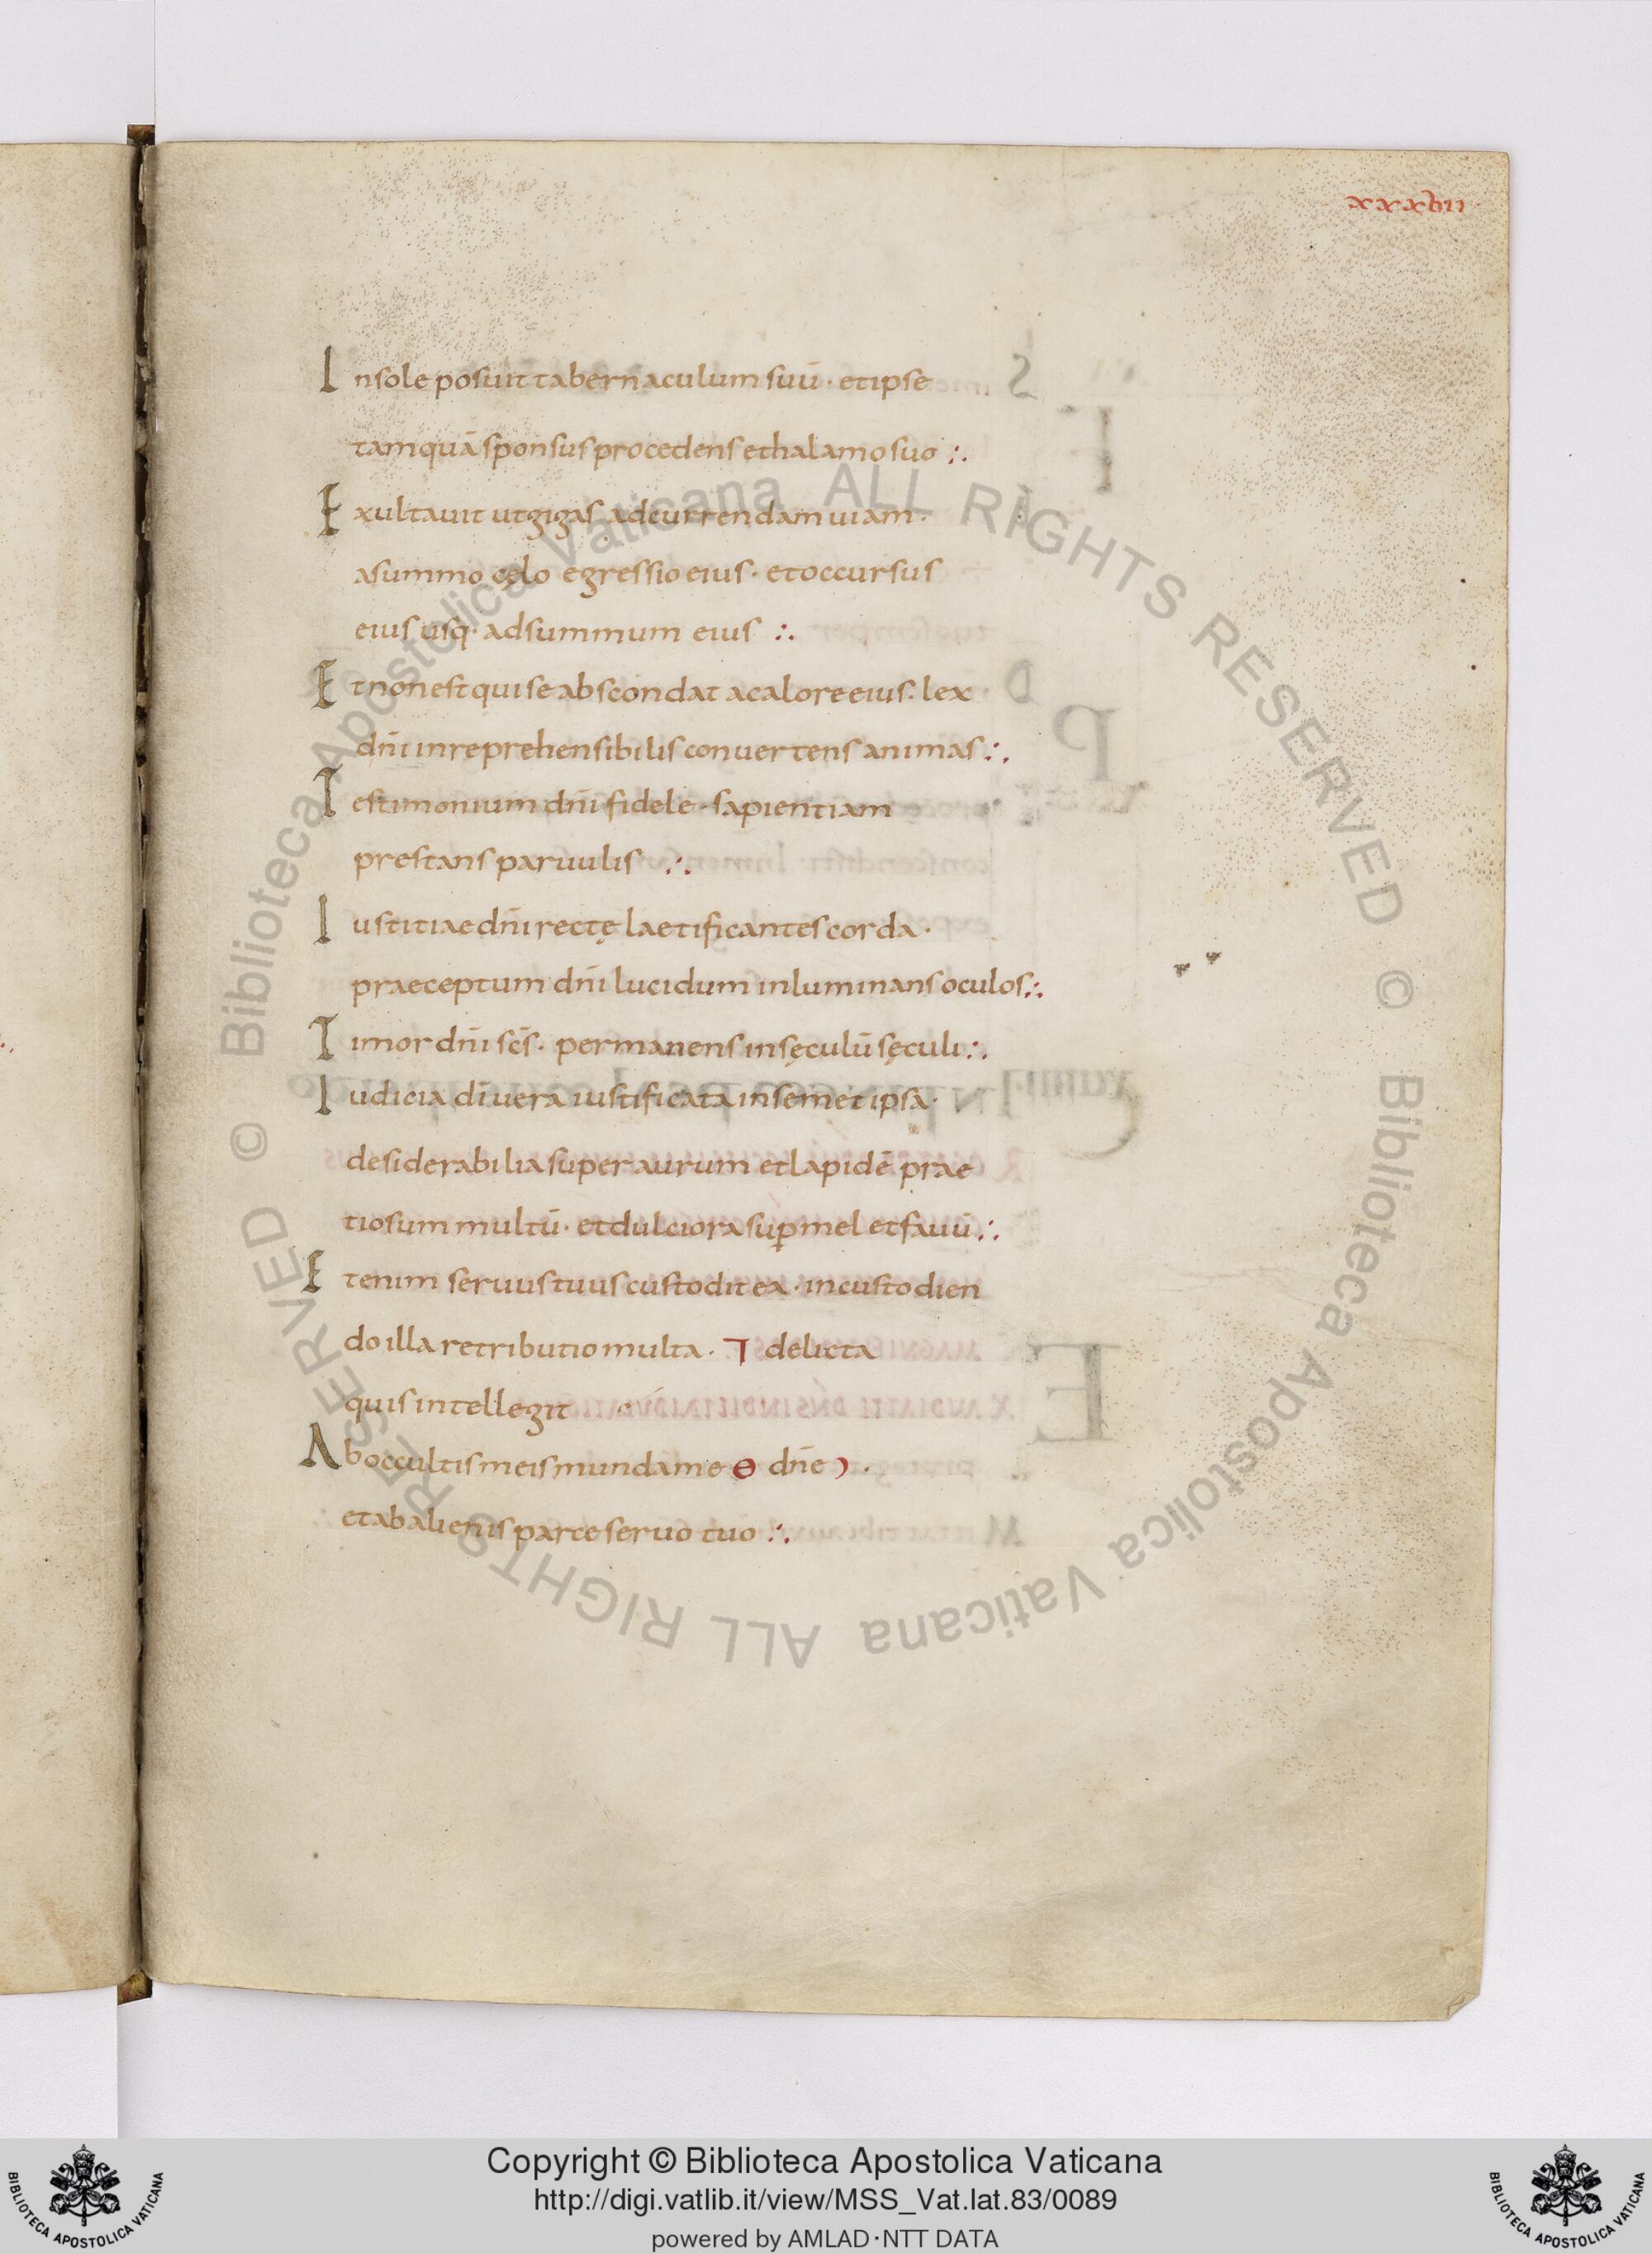 xxxvii
In sole posuit tabernaculum suū · et ipse
tamquā sponsus procedens e thalamo suo :.
Exultauit ut gigas ad currendam uiam ·
a summo cęlo egressio eius · et occursus
eius usq· ad summum eius :.
Et non est qui se abscondat a calore eius · lex
dn̄i inreprehensibilis conuertens animas :.
Testimonium dn̄i fidele · sapientiam
prestans paruulis :.
Iustitiae dn̄i rectę laetificantes corda ·
praeceptum dn̄i lucidum inluminans oculos :.
Timor dn̄i sc̄s · permanens in sęculū sęculi :.
Iudicia dī uera iustificata in semet ipsa ·
desiderabilia super aurum et lapidē prae
tiosum multū · et dulciora sup̄ mel et fauū :.
Etenim seruus tuus custodit ea · in custodien
do illa retributio multa · ⁊ delicta
quis intellegit
Ab occultis meis munda me ɵ dn̄e ) ·
et ab alienis parce seruo tuo :.
© Biblioteca Apostolica Vaticana ALL RIGHTS RESERVED
© Biblioteca Apostolica Vaticana ALL RIGHTS RESERVED
Copyright © Biblioteca Apostolica Vaticana
http://digi.vatlib.it/view/MSS_Vat.lat.83/0089
powered by AMLAD·NTT DATA
BIBLIOTECA APOSTOLICA VATICANA
BIBLIOTECA APOSTOLICA VATICANA